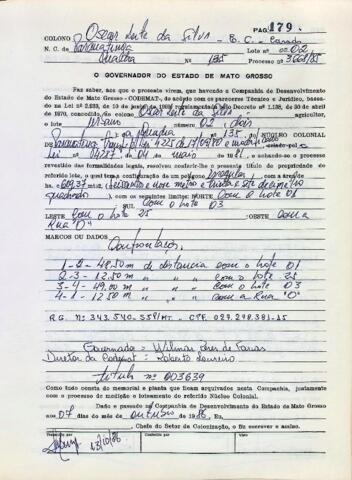 PAG. 179
COLONO Oscar Leite da Silva - B.C. - Casado
N. C. de Paranatinga Lote n.º 02
Quadra N.º 135 Processo n.º 3668/85
O GOVERNADOR DO ESTADO DE MATO GROSSO
Faz saber, aos que o presente virem, que havendo a Companhia de Desenvolvimento
do Estado de Mato Grosso - CODEMAT, de acordo com os pareceres Técnico e Jurídico, baseados
na Lei n.º de junho de 1964, regulamentada pelo Decreto nº 1.138, de 30 de abril
de 1970, concedido, ao colono Oscar Leite da Silva agricultor,
o lote urbano número 02 - dois
da quadra nº 135 do NÚCLEO COLONIAL
Paranatinga
lei 4.287 de 04 de maio de 81, e achando-se o processo
revestido das formalidades legais, mandou expedir o presente título de propriedade do
referido lote, o qual tem a configuração de um polígono irregular com a área de
ha. 609,37 mts. (seiscentos e nove metros e trinta e sete decímetros
quadrados), com os seguintes limites: NORTE Com o Lote 01
SUL Com o Lote 03
LESTE Com o Lote 25 - OESTE com a
Rua "O"
MARCOS OU DADOS
Confrontação
1-2- 48.50 m de distancia com o Lote 01
2-3- 12.50 m " " Com o Lote 25
3-4- 49.00 m " " Com o Lote 03
4-1- 12.50 m " " com a Rua "O"
R.G. Nº 343.540-SSP/MT. - CPF. 029.298.381-15
Governador = Wilmar Peres de Farias
Diretor da Codemat = Roberto Loureiro
Titulo nº 003639
Como tudo consta do memorial e planta que ficam arquivados nesta Companhia, juntamente
com o processo de medição e loteamento do referido Núcleo Colonial.
Dado e passado na Companhia de Desenvolvimento do Estado de Mato Grosso
aos 07 dias do mês de outubro de 1986. Eu,
, Chefe do Setor de Colonização, o fiz escrever e assino.
Visto
13/10/86